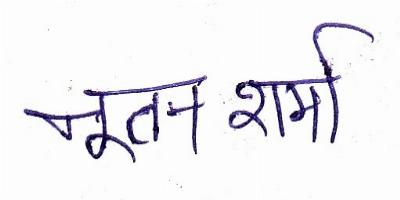 नूतन शर्मा